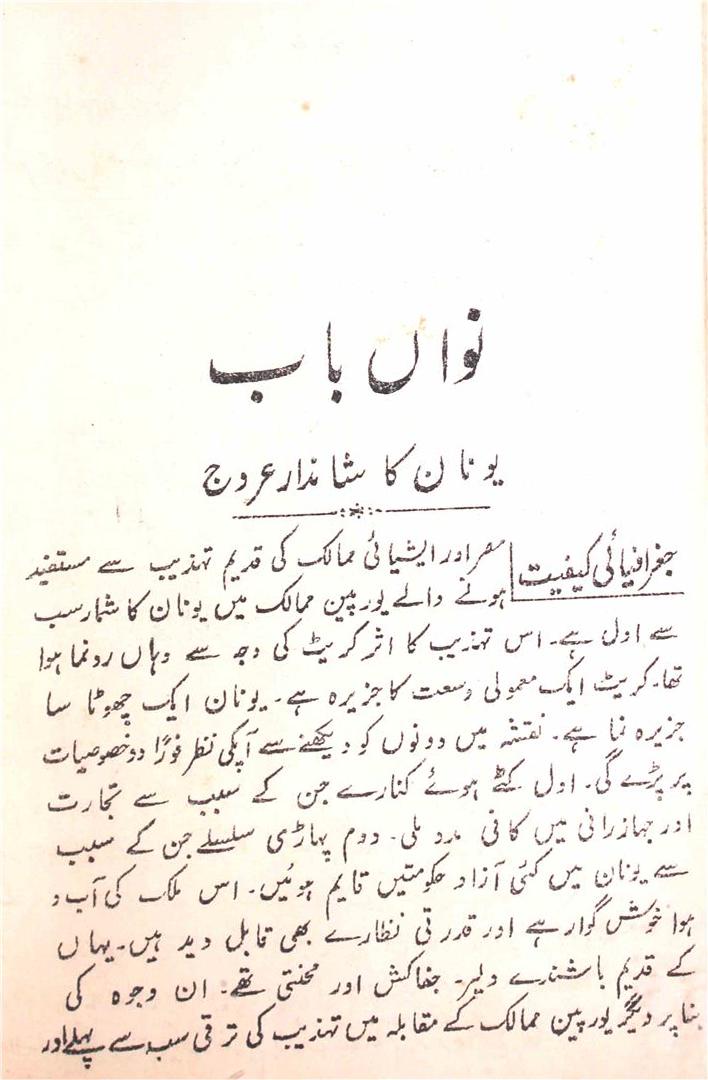 نواں باب
یونان کا شاندار عروج
جغرافیائی کیفیت
مصر اور ایشیائی ممالک کی قدیم تہذیب سے مستفید
ہونے والے یورپین ممالک میں یونان کا شمار سب
سے اول ہے۔ اس تہذیب کا اثر کریٹ کی وجہ سے وہاں رونما ہوا
تھا۔ کریٹ ایک معمولی وسعت کا جزیرہ ہے۔ یونان ایک چھوٹا سا
جزیرہ نما ہے۔ نقشہ میں دونوں کو دیکھنے سے آپکی نظر فوراً دو خصوصیات
پر پڑے گی۔ اول کٹے ہوئے کنارے جن کے سبب سے تجارت
اور جہازرانی میں کافی مدد ملی۔ دوم پہاڑی سلسلے جن کے سبب
سے یونان میں کئی آزاد حکومتیں قایم ہوئیں۔ اس ملک کی آب و
ہوا خوش گوار ہے اور قدرتی نظارے بھی قابل دید ہیں۔ یہاں
کے قدیم باشندے دلیر۔ جفاکش اور محنتی تھے۔ ان وجوہ کی
بنا پر دیگر یورپین ممالک کے مقابلہ میں تہذیب کی ترقی سب سے پہلے اور